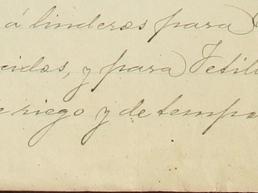 á linderos para
cidos, y para Fetil
e riego y de tempo